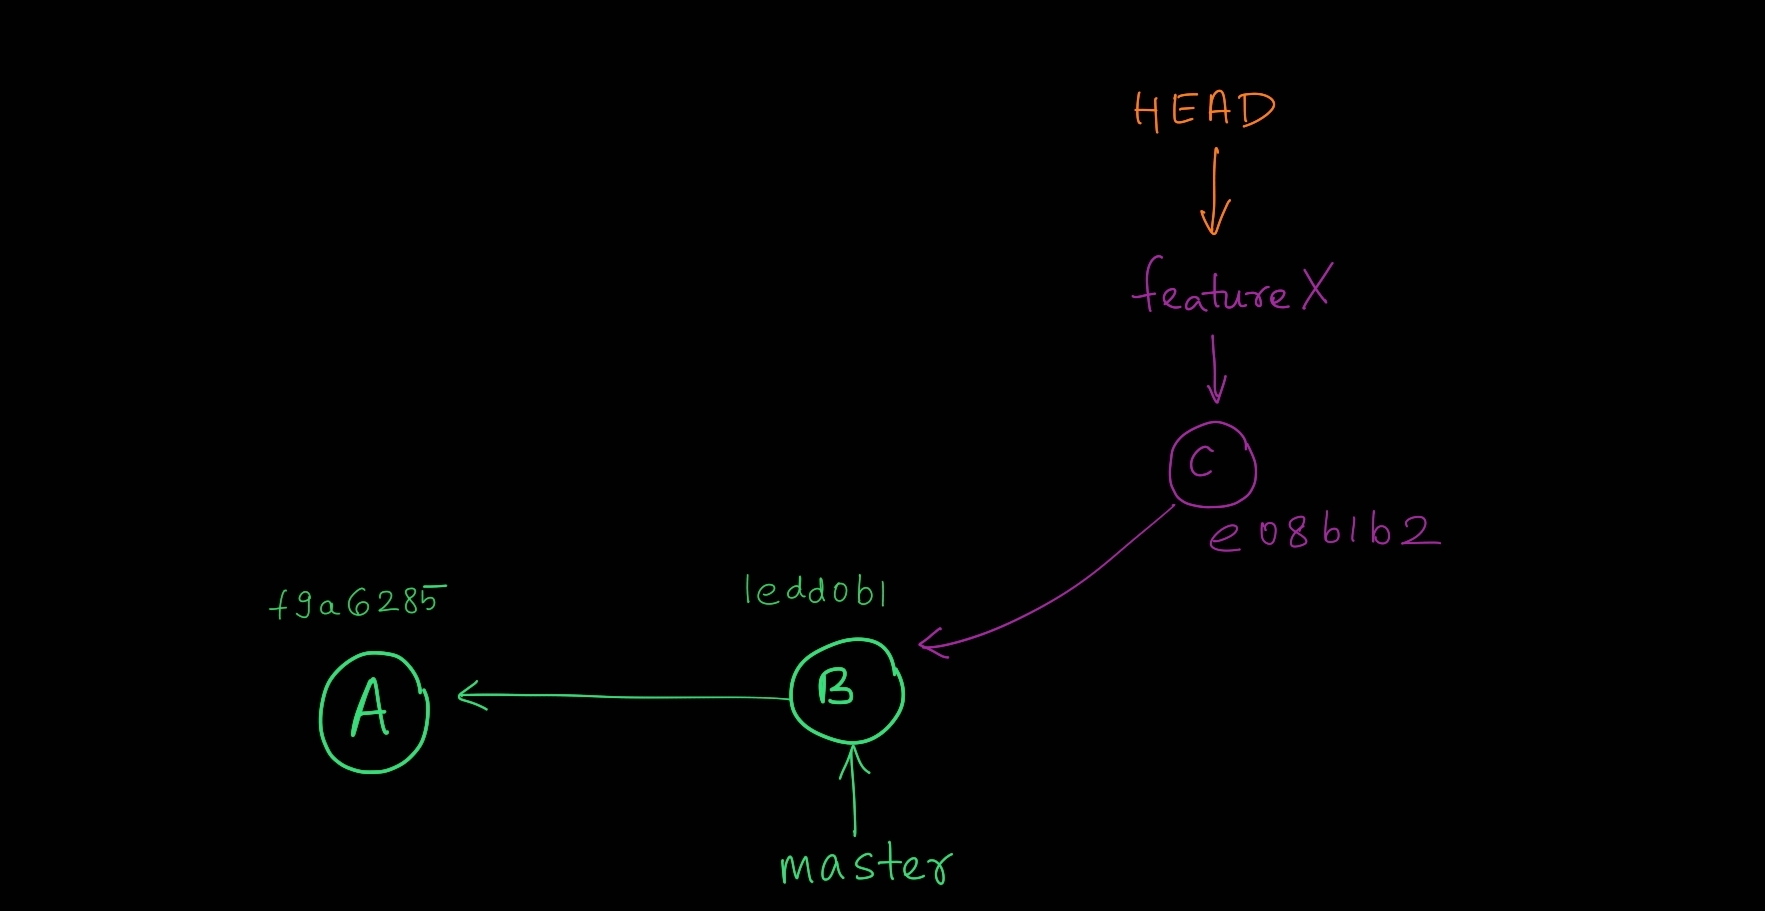 HEAD
featureX
C
e08b1b2
f9a6285
1edd0b1
A
B
master